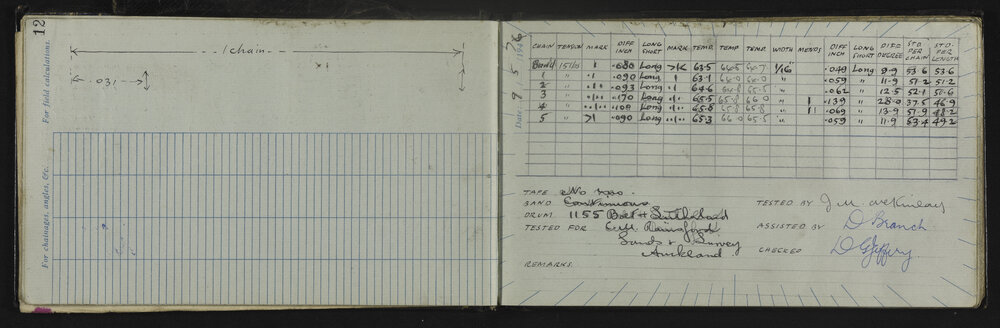 12
For field calculations.
1 chain
.031
For chainages, angles, &c.
Date 9 5 1946
CHAIN TENSION MARK DIFF INCH LONG SHORT MARK TEMP. TEMP TEMP. WIDTH MENDS DIFF INCH LONG SHORT DIFF DEGREE STD. PER CHAIN STD. PER LENGTH
Band 15 lbs .080 Long 63.5 1/16" .049 Long 9.9 53.6 53.6
1 " .090 Long 63.1 " .059 " 11.9 51.2 51.2
2 " .093 Long 64.6 " .062 " 12.5 52.1 51.6
3 " .170 Long 65.5 66.0 " 1 .139 " 28.0 37.5 46.9
4 " .100 Long 65.8 65.8 65.8 " 11 .069 " 13.9 51.9 48.2
5 " .090 Long 65.3 66.0 65.5 " .059 " 11.9 53.4 49.2
TAPE No
BAND Continuous
DRUM 1155 Bolt &
TESTED FOR Rainsford
Lands & Survey
Auckland
REMARKS.
TESTED BY J. M. McKinlay
ASSISTED BY D Branch
CHECKED D G Jeffery.